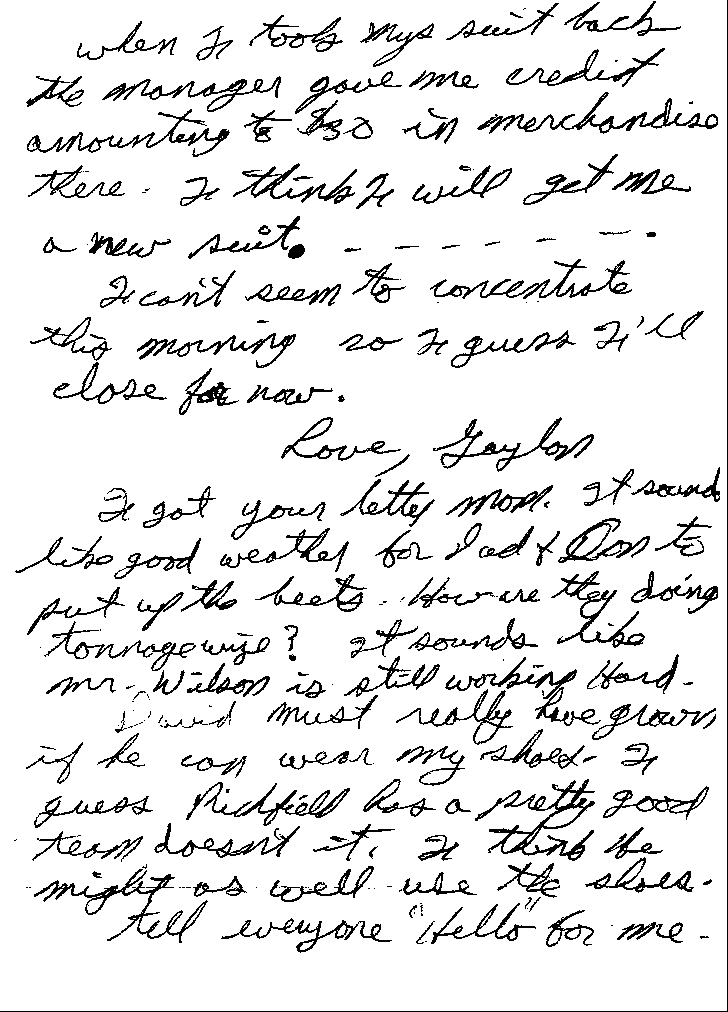 when I took my suit back
the manager gave me credit
amounting to $30 in merchandise
there. I think I will get me
a new suit. - - - - - - -.
I can't seem to concentrate
this morning so I guess I'll
close for now.
Love, Gaylon
I got your letter mom. It sound
like good weather for Dad & Don to
put up the beets. How are they doing
tonnagewize? It sounds like
mr. Wilson is still working Hard.
David must really have grown
if he can wear my shoes. I
guess Richfield has a pretty good
team doesn't it. I think he
might as well use the shoes.
tell everyone "Hello" for me.